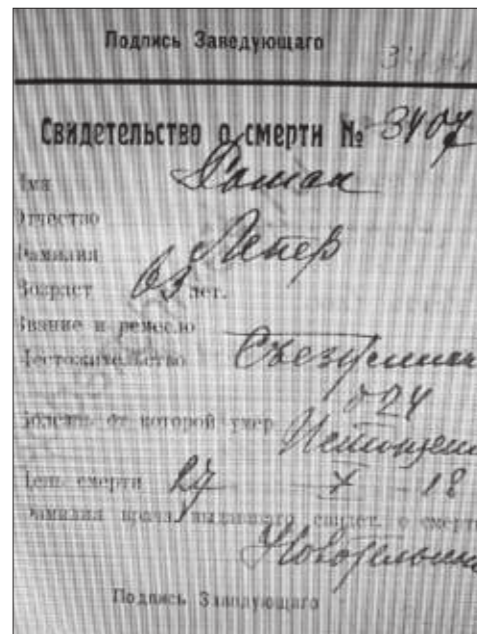 Подпись Заведующаго
Свидетельство о смерти № 3407
Имя Роман
Отчество
Фамилия Лепер
Возраст 63 лет.
Звание и ремесло
Местожительство Съезжинская
д 24
Болезнь от которой умер Истощение
День смерти 27 X - 18
Фамилия врача выдавшего свидет. о смерти
Подпись Заведующаго